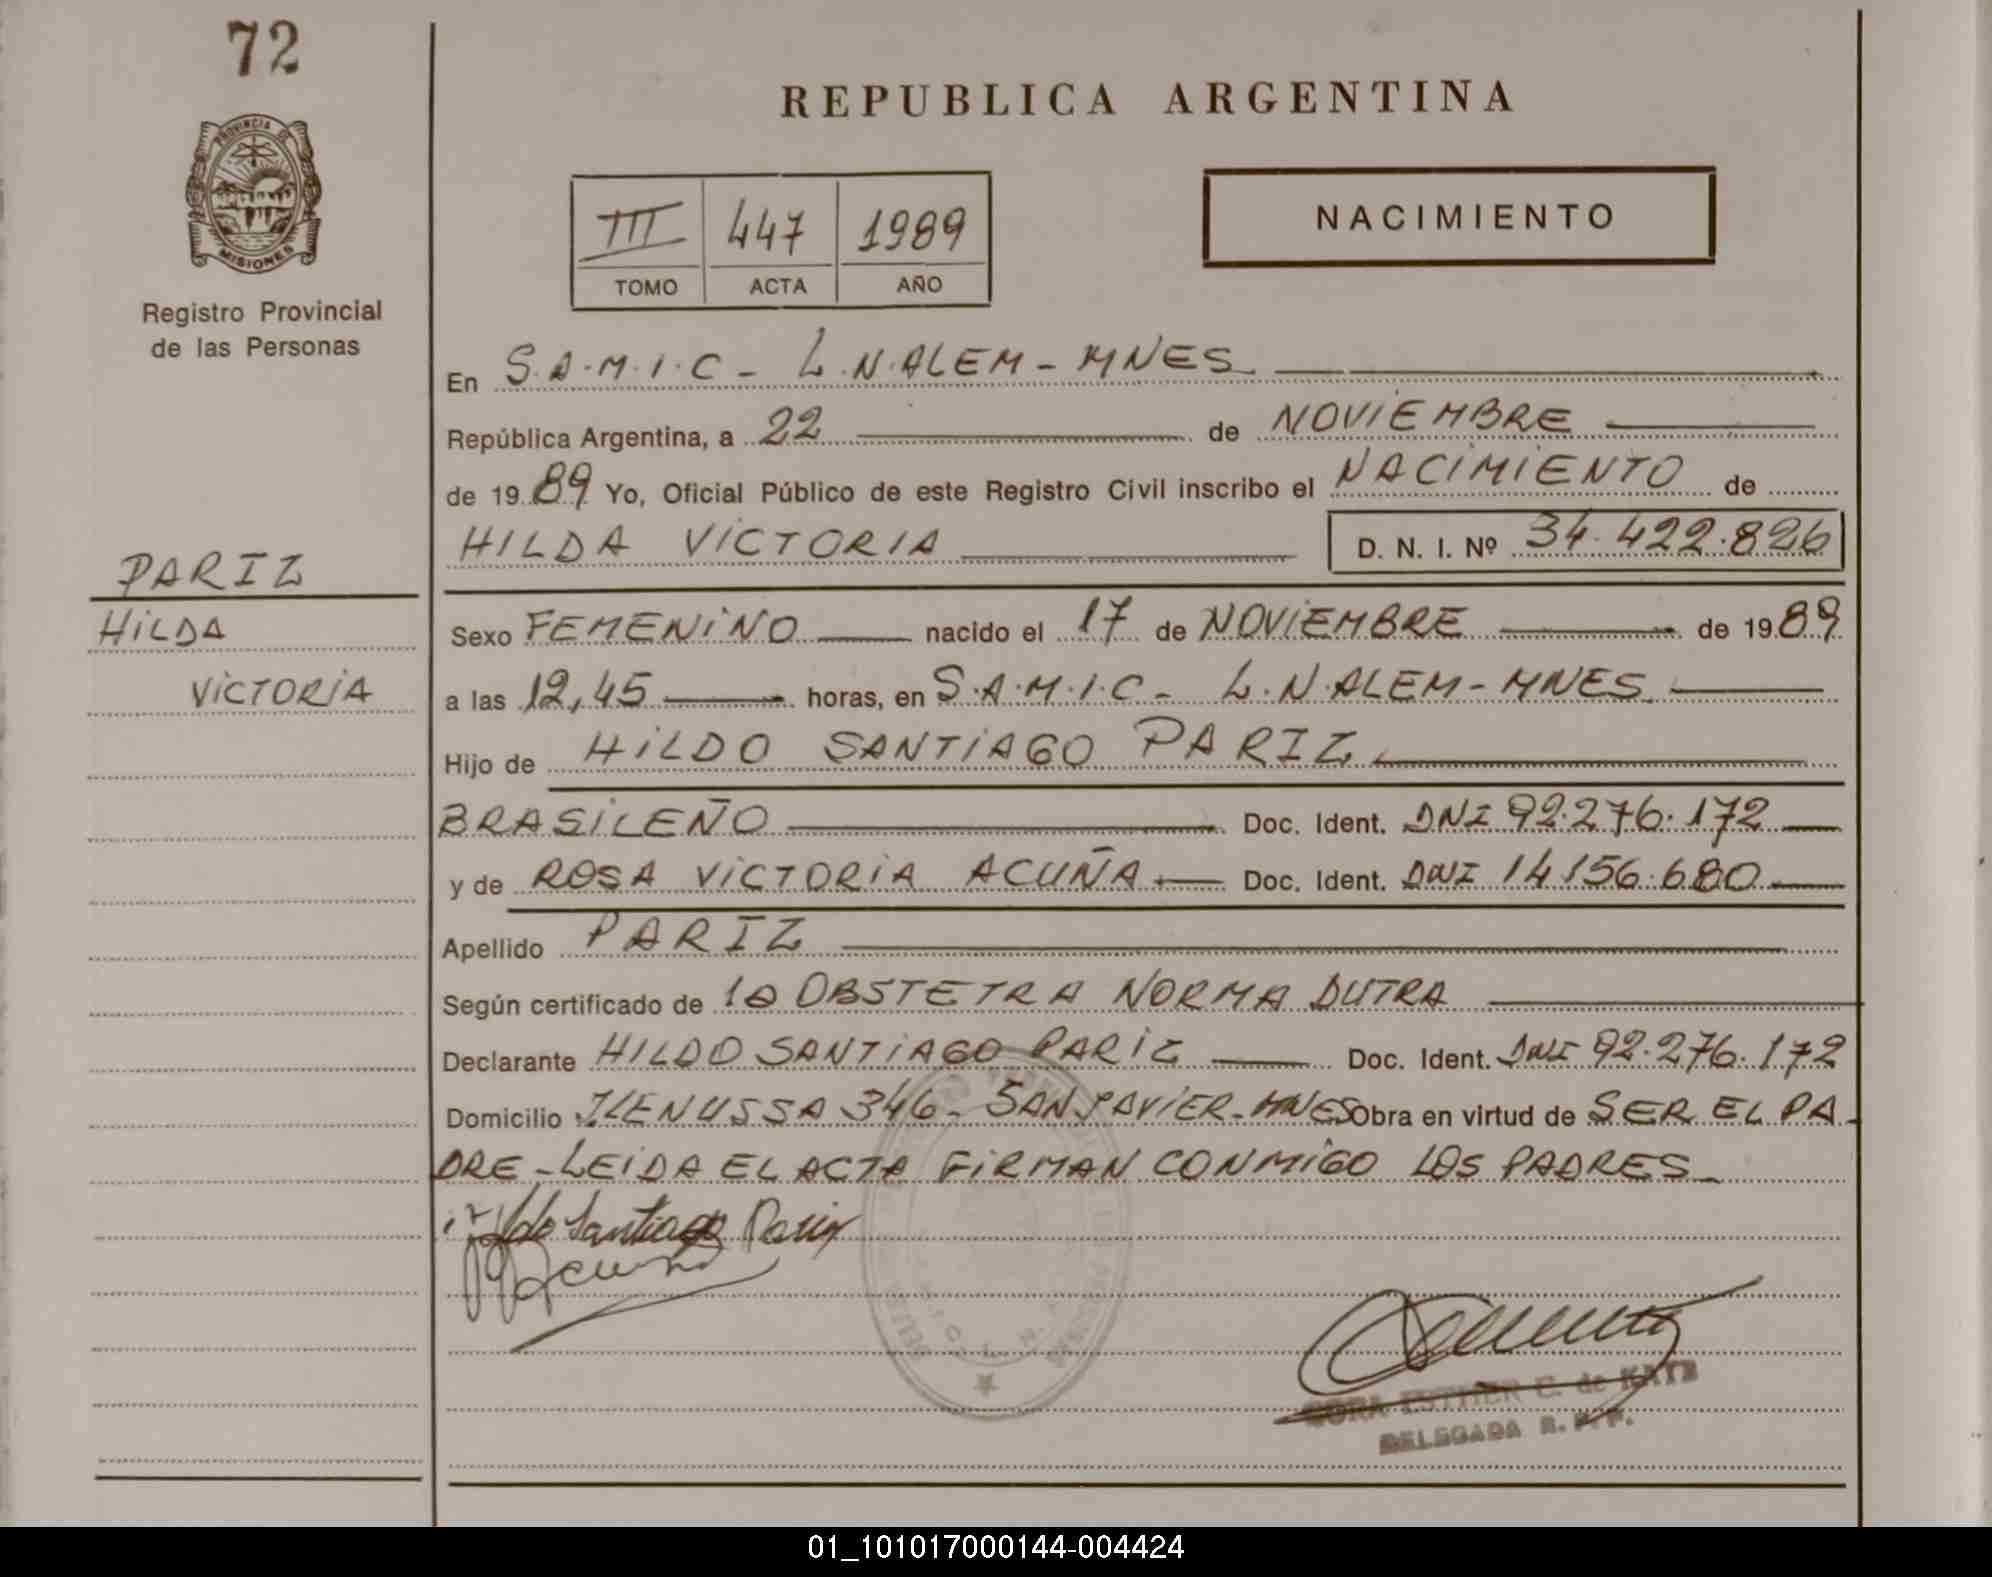 72
PROVINCIA DE
MISIONES
Registro Provincial
de las Personas
PARIZ
HILDA
VICTORIA
REPUBLICA ARGENTINA
III 447 1989
TOMO ACTA AÑO
NACIMIENTO
En S.A.M.I.C - L.N.ALEM - MNES
República Argentina, a 22 de NOVIEMBRE
de 1989 Yo, Oficial Público de este Registro Civil inscribo el NACIMIENTO de
HILDA VICTORIA D. N. I. Nº 34.422.826
Sexo FEMENINO nacido el 17 de NOVIEMBRE de 1989
a las 12,45 horas, en S.A.M.I.C - L.N.ALEM - MNES
Hijo de HILDO SANTIAGO PARIZ
BRASILEÑO Doc. Ident. DNI 92.276.172
y de ROSA VICTORIA ACUÑA Doc. Ident. DNI 14.156.680
Apellido PARIZ
Según certificado de la OBSTETRA NORMA DUTRA
Declarante HILDO SANTIAGO PARIZ Doc. Ident. DNI 92.276.172
Domicilio 346 - SAN JAVIER - MNES Obra en virtud de SER EL PA-
DRE - LEIDA EL ACTA FIRMAN CONMIGO LOS PADRES
Santiago Pariz
Acuña
ESTHER E. de
DELEGADA R. P. P.
01_101017000144-004424